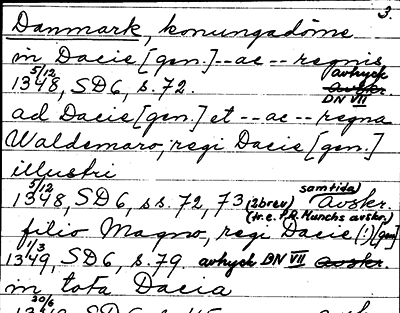 3.
Danmark, konungadöme
in Dacie [gen.] -- ac -- regnis
5/12 avtryck
1348, SD6, s. 72. avskr.
DN VII
ad Dacie [gen.] et -- ac -- regna
Waldemaro, regi Dacie [gen.]
illustri
5/12 samtida
1348, SD6, ss. 72, 73 (2 brev) avskr.
(tr. e. P.A. Munchs avskr.)
filio Magno, regi Dacie (:) [gen]
1/3
1349, SD6, s. 79. avtryck DN VII avskr.
in tota Dacia
20/6